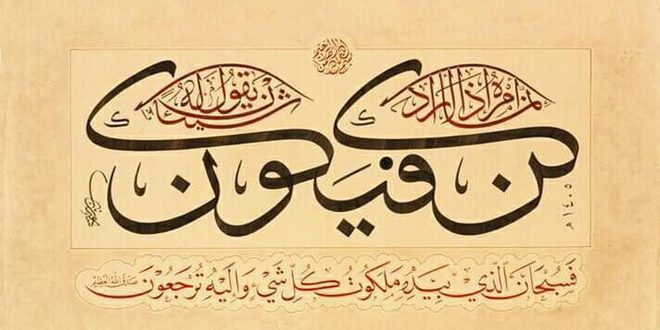 بسم الله الرحمن الرحيم
إنما أمره إذا أراد شيئا أن يقول له
كن فيكون
١٤٠٥
فَسُبْحَانَ الَّذِي بِيَدِهِ مَلَكُوتُ كُلِّ شَيْءٍ وَإِلَيْهِ تُرْجَعُونَ صدق الله العظيم